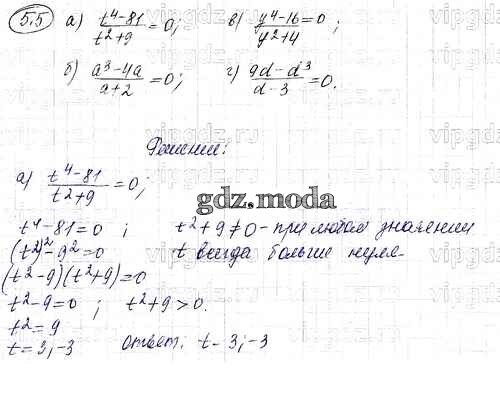 5.5 а) t⁴-81/t²+9 = 0; в) y⁴-16/y²+4 = 0;
б) a³-4a/a+2 = 0; г) 9d-d³/d-3 = 0.
Решение:
а) t⁴-81/t²+9 = 0;
gdz.moda
t⁴-81=0 ; t²+9≠0 - при любом значении
(t²)²-9²=0 t всегда больше нуля-
(t²-9)(t²+9)=0
t²-9=0 ; t²+9>0.
t²=9
t=3;-3 Ответ: t-3;-3
vipgdz.ru